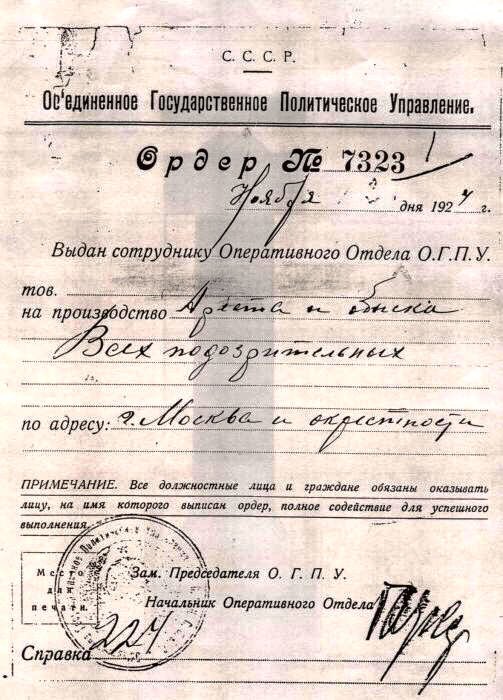 С. С. С. Р.
Об'единенное Государственное Политическое Управление.
Ордер № 7323
Ноября дня 1927 г.
Выдан сотруднику Оперативного Отдела О.Г.П.У.
тов.
на производство Ареста и обыска
Всех подозрительных
по адресу: г. Москва и окрестности
ПРИМЕЧАНИЕ. Все должностные лица и граждане обязаны оказывать
лицу, на имя которого выписан ордер, полное содействие для успешного
выполнения.
Место
для
печати.
Зам. Председателя О. Г. П. У.
Начальник Оперативного Отдела
Справка 224